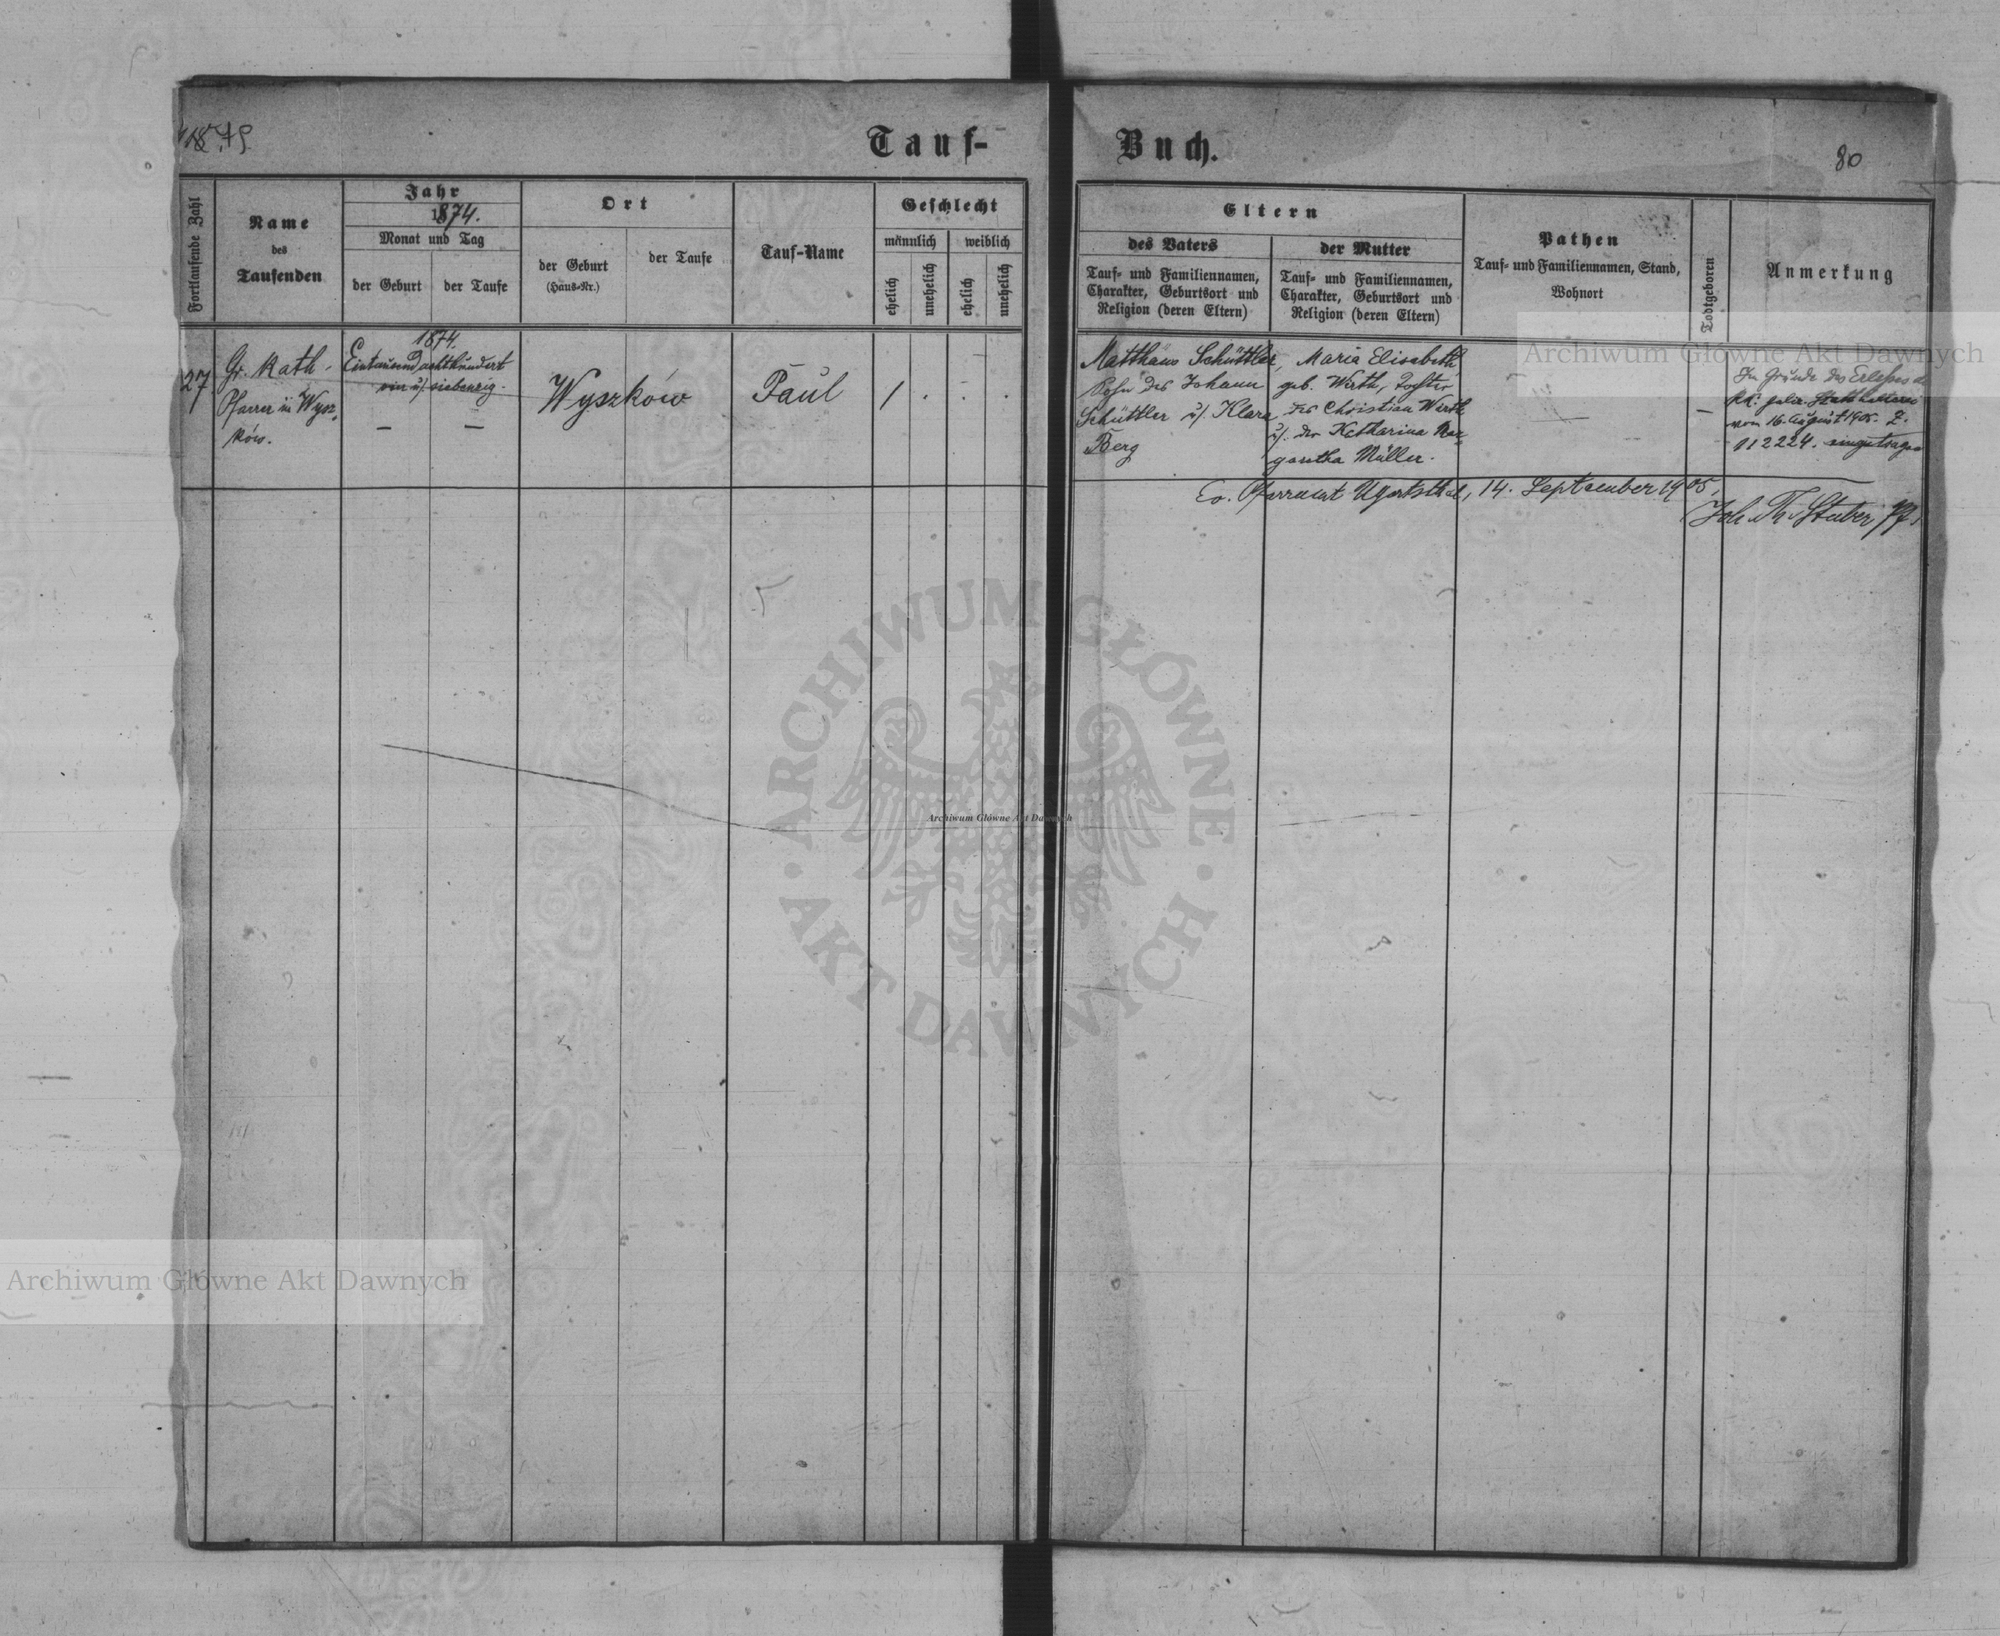 Tauf-
Buch.
80
Fortlaufende Zahl
Name
des
Taufenden
Jahr
1874.
Monat und Tag
der Geburt
der Taufe
Ort
der Geburt
(Haus-Nr.)
der Taufe
Tauf-Name
Geschlecht
männlich
weiblich
ehelich
unehelich
ehelich
unehelich
Eltern
des Vaters
Tauf- und Familiennamen,
Charakter, Geburtsort und
Religion (deren Eltern)
der Mutter
Tauf- und Familiennamen,
Charakter, Geburtsort und
Religion (deren Eltern)
Pathen
Tauf- und Familiennamen, Stand,
Wohnort
Todtgeboren
Anmerkung
27
Gr. Kath.
Pfarrer in Wysz-
ków.
1874.
Eintausend achthundert
vier u. siebenzig.
— —
Wyszków
Paul
1 . . .
Matthäus Schüttler,
Sohn des Johann
Schüttler u. Klara
Berg
Maria Elisabeth
geb. Wirth, Tochter
des Christian Wirth
u. der Katharina Mar-
garetha Müller.
—
—
Im Grunde des Erlasses der
k.k. galiz. Statthalterei
vom 16. August 1905. Z.
112224. eingetragen
Ev. Pfarramt Ugartsthal, 14. September 1905,
Joh. Th. Stuber, Pf.
Archiwum Główne Akt Dawnych
ARCHIWUM GŁÓWNE
AKT DAWNYCH
Archiwum Główne Akt Dawnych
Archiwum Główne Akt Dawnych